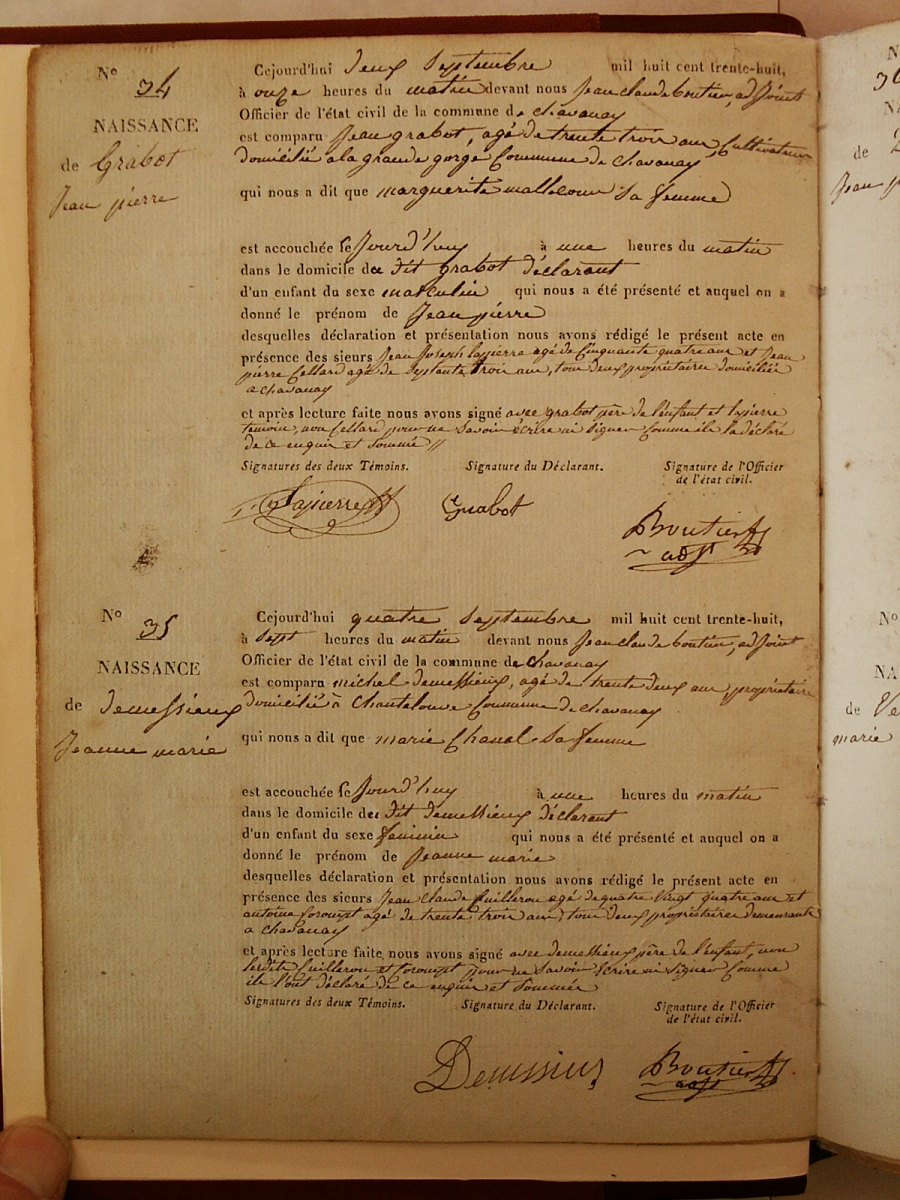 Nº 34
NAISSANCE
de Grabot
Jean pierre
Cejourd'hui deux Septembre mil huit cent trente-huit,
à onze heures du matin devant nous Jean claude boutier, adjoint
Officier de l'état civil de la commune de chavanay
est comparu Jean grabot, agé de trente trois ans, Cultivateur
domicilié a la grande gorge Commune de chavanay
qui nous a dit que marguerite Sa femme
est accouchée ce Jourd'huy à une heures du matin
dans le domicile de dit grabot déclarant
d'un enfant du sexe masculin qui nous a été présenté et auquel on a
donné le prénom de Jean pierre
desquelles déclaration et présentation nous avons rédigé le présent acte en
présence des sieurs Jean Joseph lapierre agé de Cinquante quatre ans et Jean
pierre Cellard agé de Septante trois ans, tous deux propriétaires domiciliés
a chavanay
et après lecture faite nous avons signé avec grabot père de l'enfant et lapierre
temoin, non Cellard pour ne Savoir écrire ni Signer Comme il la déclaré
de ce enquis et Sommé //
Signatures des deux Témoins. Signature du Déclarant. Signature de l'Officier
de l'état civil.
Lapierre Grabot
Boutier
adjt
Nº 35
NAISSANCE
de demessieux
Jeanne marie
Cejourd'hui quatre Septembre mil huit cent trente-huit,
à Sept heures du matin devant nous Jean claude boutier, adjoint
Officier de l'état civil de la commune de chavanay
est comparu michel demessieux, agé de trente deux ans propriétaire
domicilié à Chantelouve Commune de chavanay
qui nous a dit que marie Chanal Sa femme
est accouchée ce Jourd'huy à une heures du matin
dans le domicile de dit demessieux déclarant
d'un enfant du sexe féminin qui nous a été présenté et auquel on a
donné le prénom de Jeanne marie
desquelles déclaration et présentation nous avons rédigé le présent acte en
présence des sieurs Jean Claude Cuilleron agé de quatre vingt quatre ans et
antoine agé de trente trois ans, tous deux propriétaires demeurants
a chavanay
et après lecture faite nous avons signé avec demessieux père de l'enfant, non
lesdits Cuilleron et pour ne Savoir écrire ni Signer Comme
ils l'ont déclaré de ce enquis et Sommés
Signatures des deux Témoins. Signature du Déclarant. Signature de l'Officier
de l'état civil.
Demssieux Boutier
adjt
Nº
de
Jean
Nº
NA
de Ve
marie